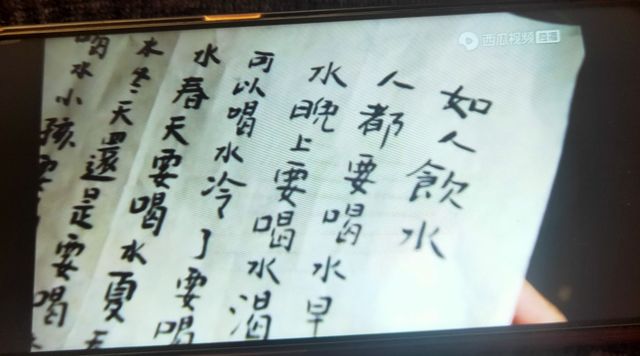 西瓜视频 直播
如人飲水
人都要喝水早
水晚上要喝水渴
可以喝水冷了要喝
水春天要喝水夏天
水冬天還是要喝
喝水小孩要